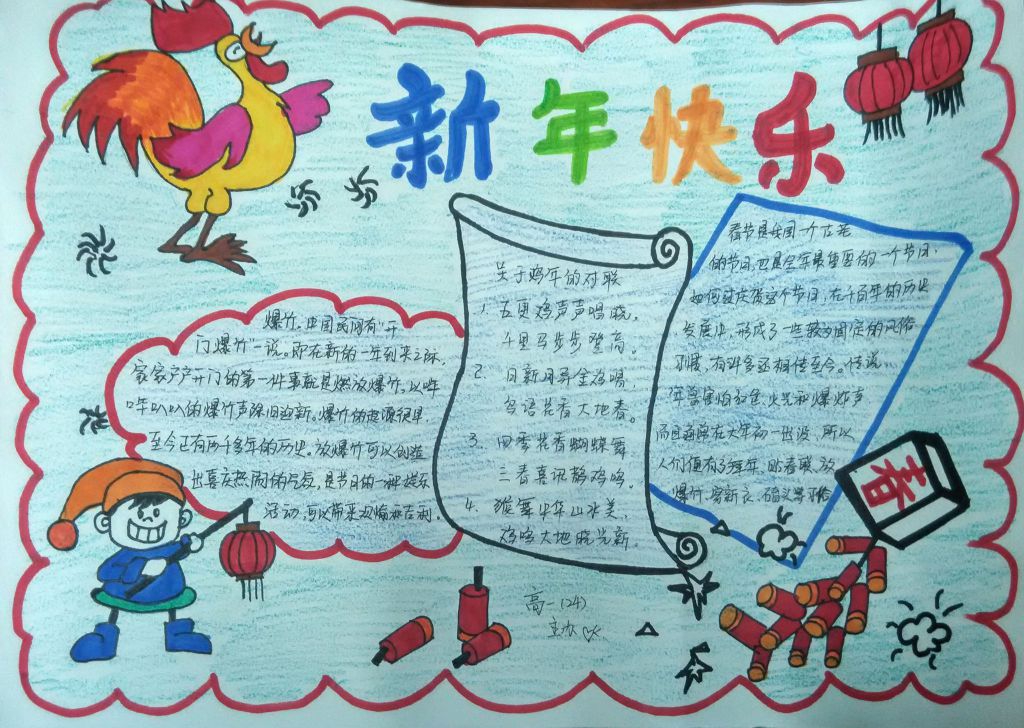 新年快乐
爆竹。中国民间有"开
门爆竹"一说。即在新的一年到来之际,
家家户户开门的第一件事就是燃放爆竹,以哔
哔叭叭的爆竹声除旧迎新。爆竹的起源很早,
至今已有两千多年的历史。放爆竹可以创造
出喜庆热闹的气氛,是节日的一种娱乐
活动,可以带来欢愉和吉利。
关于鸡年的对联
1. 五更鸡声声唱晓,
千里马步步登高。
2. 日新月异金鸡唱,
鸟语花香大地春。
3. 四季花香蝴蝶舞
三春喜讯鹊鸡鸣。
4. 猴舞中华山水美,
鸡鸣大地晓光新。
春节是我国一个古老
的节日,也是全年最重要的一个节日,
如何过庆贺这个节日,在千百年的历史
发展中,形成了一些较为固定的风俗
习惯,有许多还相传至今。传说
年兽害怕红色、火光和爆炸声,
而且通常在大年初一出没,所以
人们便有了拜年、贴春联、放
爆竹、穿新衣、
春
高一(24)
主办